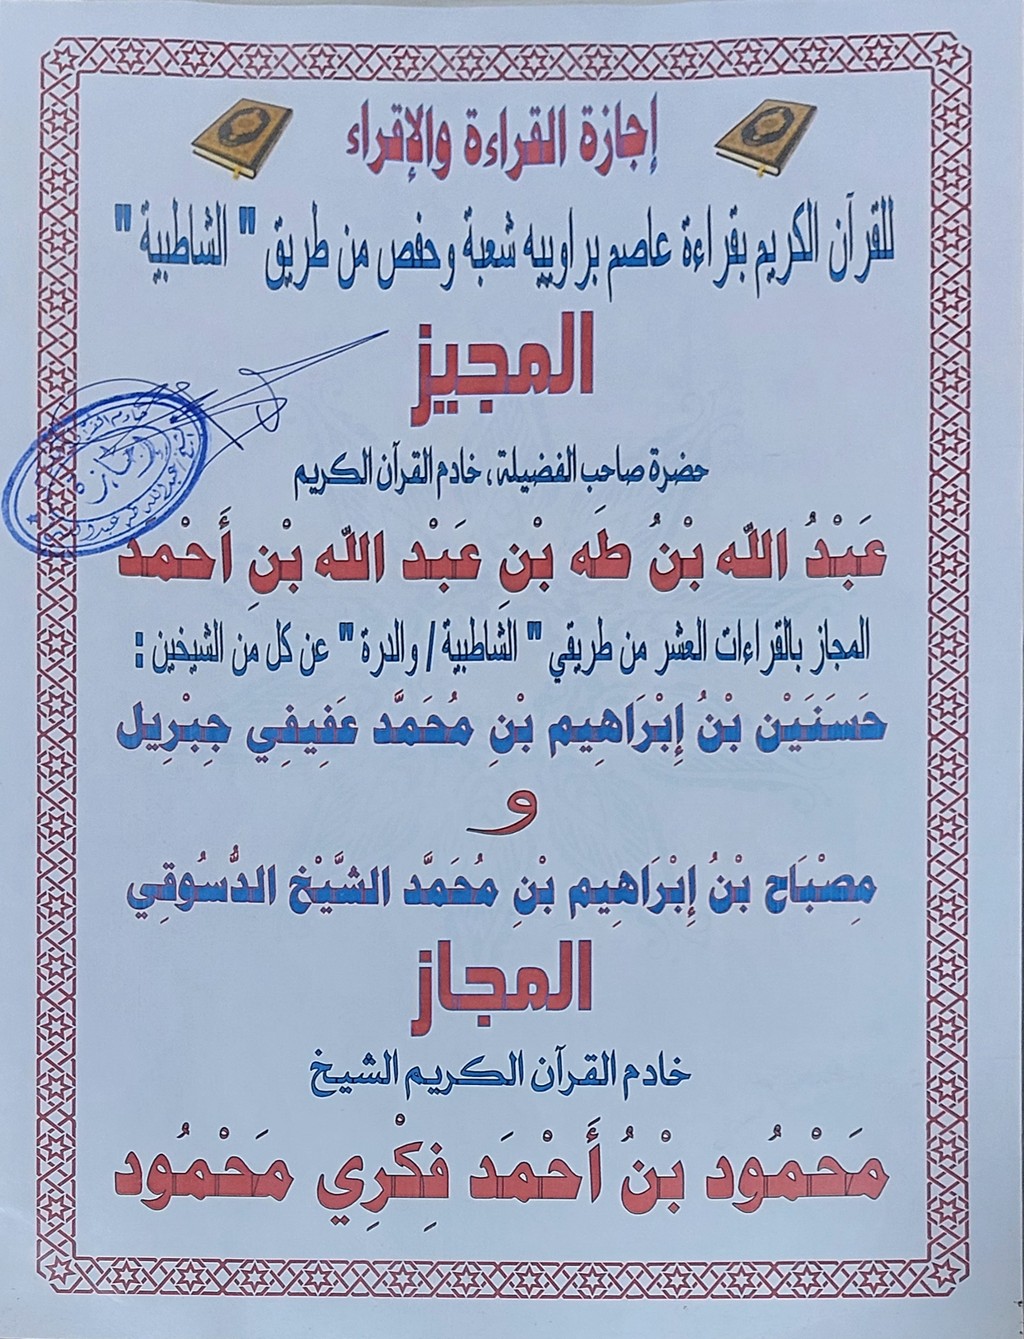 إجازة القراءة والإقراء
للقرآن الكريم بقراءة عاصم براوييه شعبة وحفص من طريق " الشاطبية "
المجيز
حضرة صاحب الفضيلة ، خادم القرآن الكريم
عَبْدُ اللَّه بْنُ طَه بْنِ عَبْد اللَّه بْنِ أَحْمَدَ
المجاز بالقراءات العشر من طريقي " الشاطبية / والدرة " عن كل من الشيخين :
حَسَنَيْن بْنُ إِبْرَاهِيم بْنِ مُحَمَّد عَفِيفِي جِبْرِيل
و
مِصْبَاح بْنُ إِبْرَاهِيم بْنِ مُحَمَّد الشَّيْخ الدُّسُوقِي
المجاز
خادم القرآن الكريم الشيخ
مَحْمُود بْنُ أَحْمَد فِكْرِي مَحْمُود